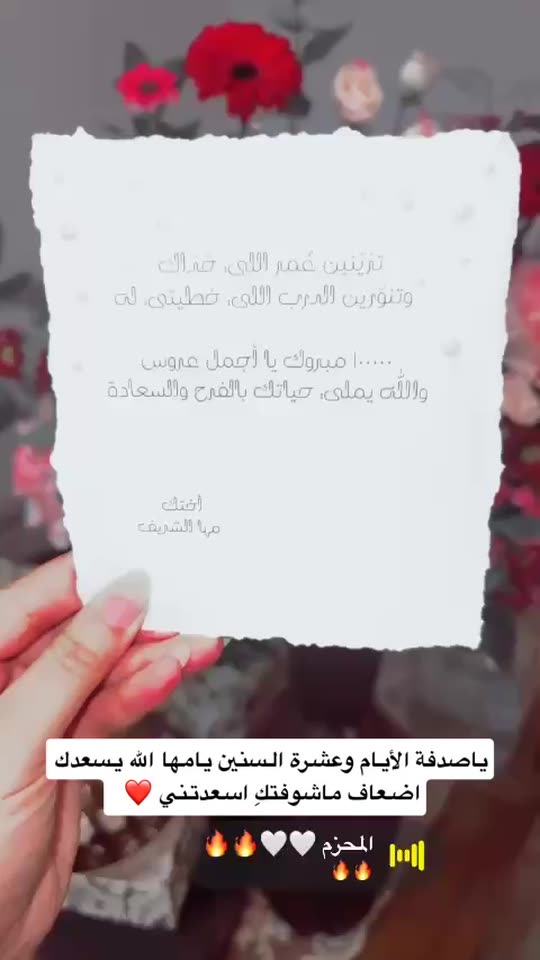 تزيّنين عُمر اللي خذاك
وتنوّرين الدرب اللي خطيتي له
١٠٠٠٠٠ مبروك يا أجمل عروس
والله يملي حياتك بالفرح والسعادة
أختك
مها الشريف
ياصدفة الأيام وعشرة السنين يامها الله يسعدك
اضعاف ماشوفتكِ اسعدتني ❤️
المحزم 🤍🤍🔥🔥
🔥🔥